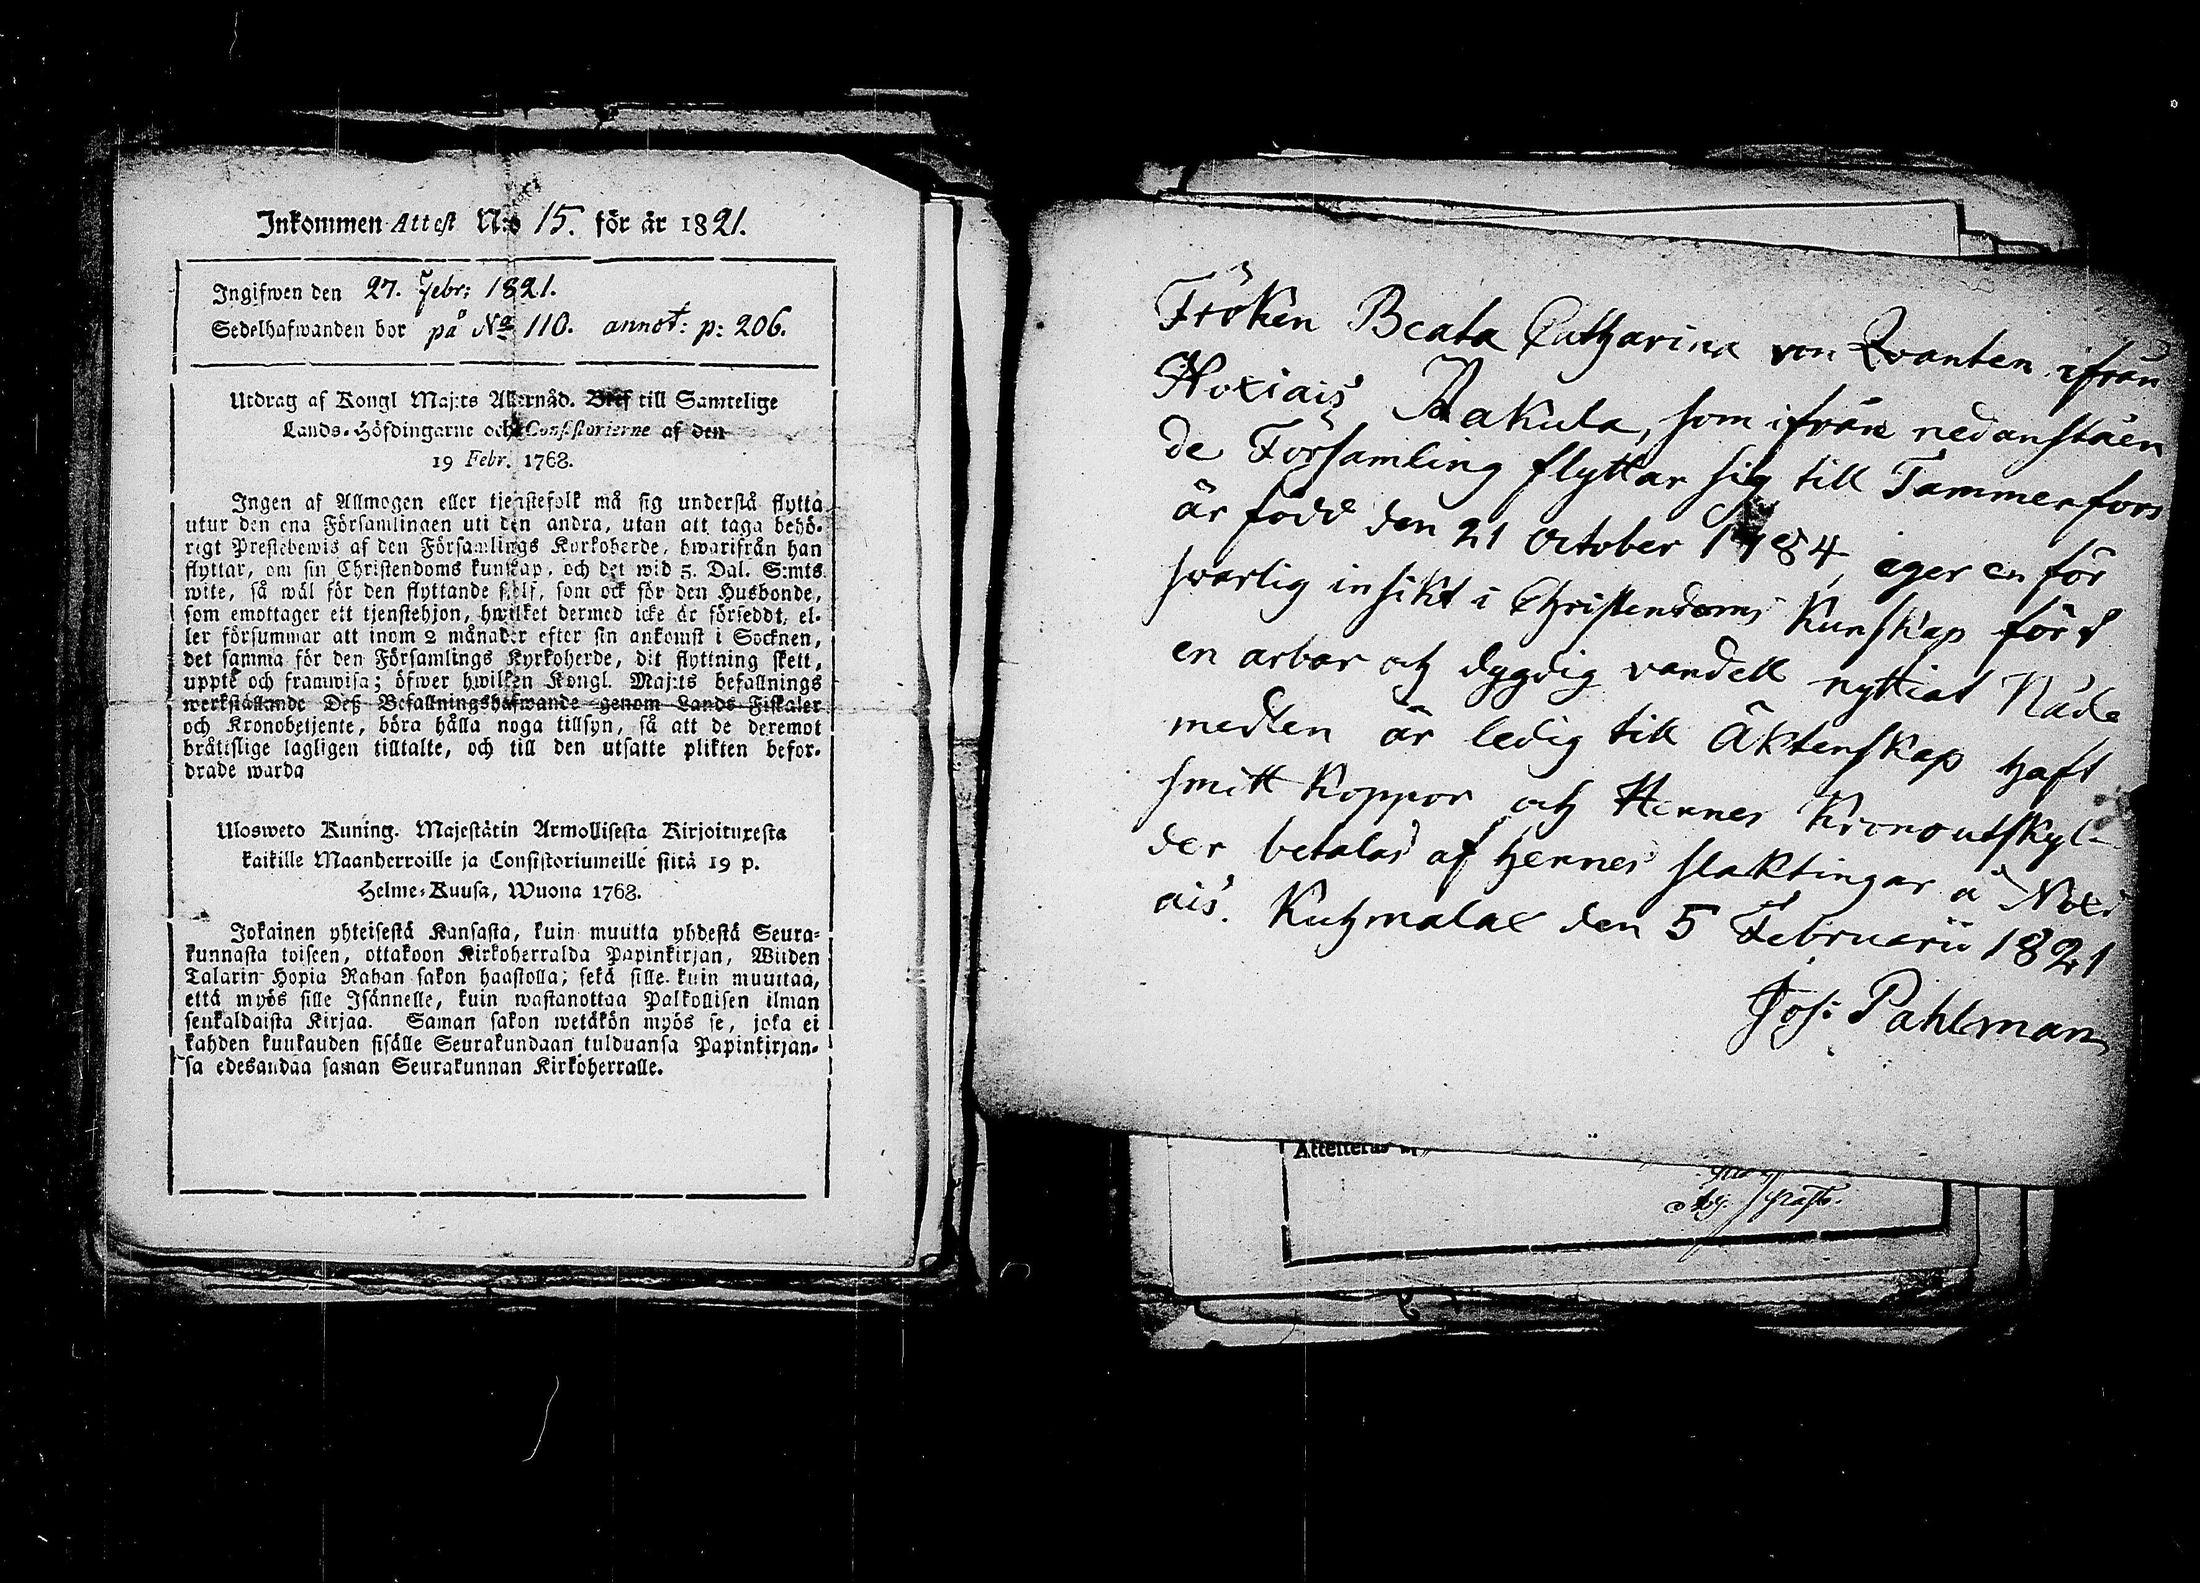 Inkommen Attest N:o 15. för år 1821.
Ingifwen den 27. Febr: 1821.
Sedelhafwanden bor på No 110. annot: p: 206.
Utdrag af Kongl Maj:ts Allernåd. Bref till Samtelige
Lands-Höfdingarne och Consistorierne af den
19 Febr. 1768.
Ingen af Allmogen eller tjenstefolk må sig understå flytta
utur den ena Församlingen uti den andra, utan att taga behö-
rigt Prestebewis af den Församlings Kyrkoherde, hwarifrån han
flyttar, om sin Christendoms kunskap, och det wid 5. Dal. S:mts
wite, så wäl för den flyttande sjelf, som ock för den Husbonde,
som emottager ett tjenstehjon, hwilket dermed icke är förseddt, el-
ler försummar att inom 2 månader efter sin ankomst i Socknen,
det samma för den Församlings Kyrkoherde, dit flyttning skett,
uppte och framwisa; öfwer hwilken Kongl. Maj:ts befallnings
werkställande Deß Befallningshafwande genom Lands Fiskaler
och Kronobetjente, böra hålla noga tillsyn, så att de deremot
bråttslige lagligen tilltalte, och till den utsatte plikten befor-
drade warda
Ulosweto Kuning. Majestätin Armollisesta Kirjoituxesta
kaikille Maanherroille ja Consistoriumeille siitä 19 p.
Helme-Kuusa, Wuona 1768.
Jokainen yhteisestä Kansasta, kuin muutta yhdestä Seura-
kunnasta toiseen, ottakoon Kirkoherralda Papinkirjan, Wiiden
Talarin Hopia Rahan sakon haastolla, sekä sille kuin muuttaa,
että myös sille Isännelle, kuin wastanottaa Palkollisen ilman
senkaldaista Kirjaa. Saman sakon wetäkön myös se, joka ei
kahden kuukauden sisälle Seurakundaan tulduansa Papinkirjan-
sa edesandaa saman Seurakunnan Kirkoherralle.
Fröken Beata Catharina von Qvanten ifrån
Noxiais Nakula, som ifrån nedanstäen
de Församling flyttar sig till Tammerfors
är född den 21 October 1784, eger en för
svarlig insikt i Christendoms Kunskap förd
en arbar och dygdig vandell nyttiat Nåde
medlen är ledig till Äktenskap haft
smitt Koppor och Hennes Kronoutskyl-
der betalas af hennes slaktingar å Noxi
ais. Kuhmalax den 5 Februarii 1821
Jos: Pahlman
Attesteras